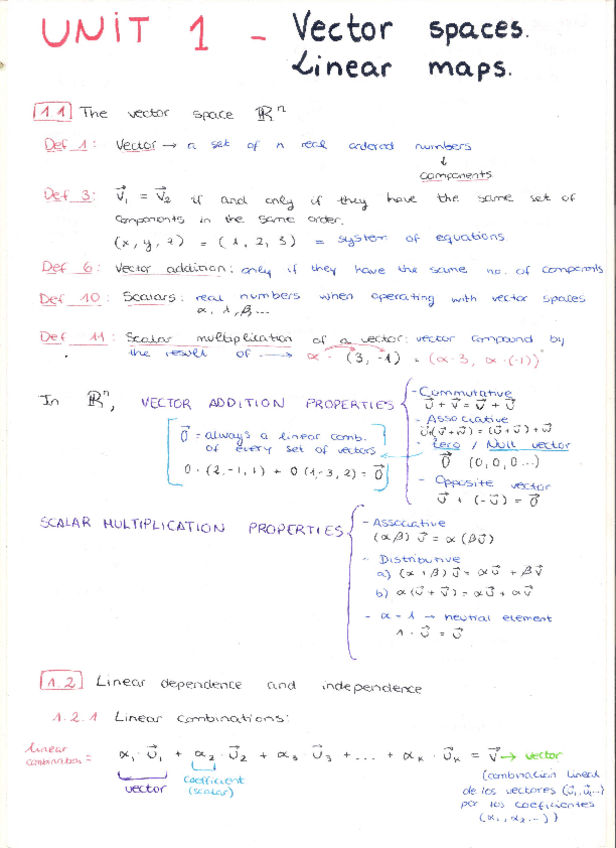 UNIT 1 - Vector spaces.
Linear maps.
1.1 The vector space ℝⁿ
Def 1: Vector → a set of n real ordered numbers
↓
components
Def 3: v⃗₁ = v⃗₂ if and only if they have the same set of
components in the same order.
(x, y, z) = (1, 2, 3) = system of equations
Def 6: Vector addition: only if they have the same no. of components
Def 10: Scalars: real numbers when operating with vector spaces
α, λ, β, ...
Def 11: Scalar multiplication of a vector: vector compound by
the result of → α · (3, -1) = (α·3, α·(-1))
In ℝⁿ, VECTOR ADDITION PROPERTIES
- Commutative
u⃗ + v⃗ = v⃗ + u⃗
- Associative
u⃗(v⃗+w⃗) = (u⃗+v⃗)+w⃗
- Zero / Null vector
0⃗ (0,0,0...)
- Opposite vector
u⃗ + (-u⃗) = 0⃗
0⃗ = always a linear comb.
of every set of vectors
0·(2,-1,1) + 0(1,-3,2) = 0⃗
SCALAR MULTIPLICATION PROPERTIES
- Associative
(αβ) u⃗ = α (βu⃗)
- Distributive
a) (α+β) u⃗ = αu⃗ + βv⃗
b) α(u⃗ + v⃗) = αu⃗ + αv⃗
- α = 1 → neutral element
1 · u⃗ = u⃗
1.2 Linear dependence and independence
1.2.1 Linear combinations:
linear
combination = α₁·u⃗₁ + α₂·u⃗₂ + α₃·u⃗₃ + ... + αₖ·u⃗ₖ = v⃗ → vector
vector
coefficient
(scalar)
(combinación lineal
de los vectores (u⃗₁, u⃗₂...)
por los coeficientes
(α₁, α₂...))